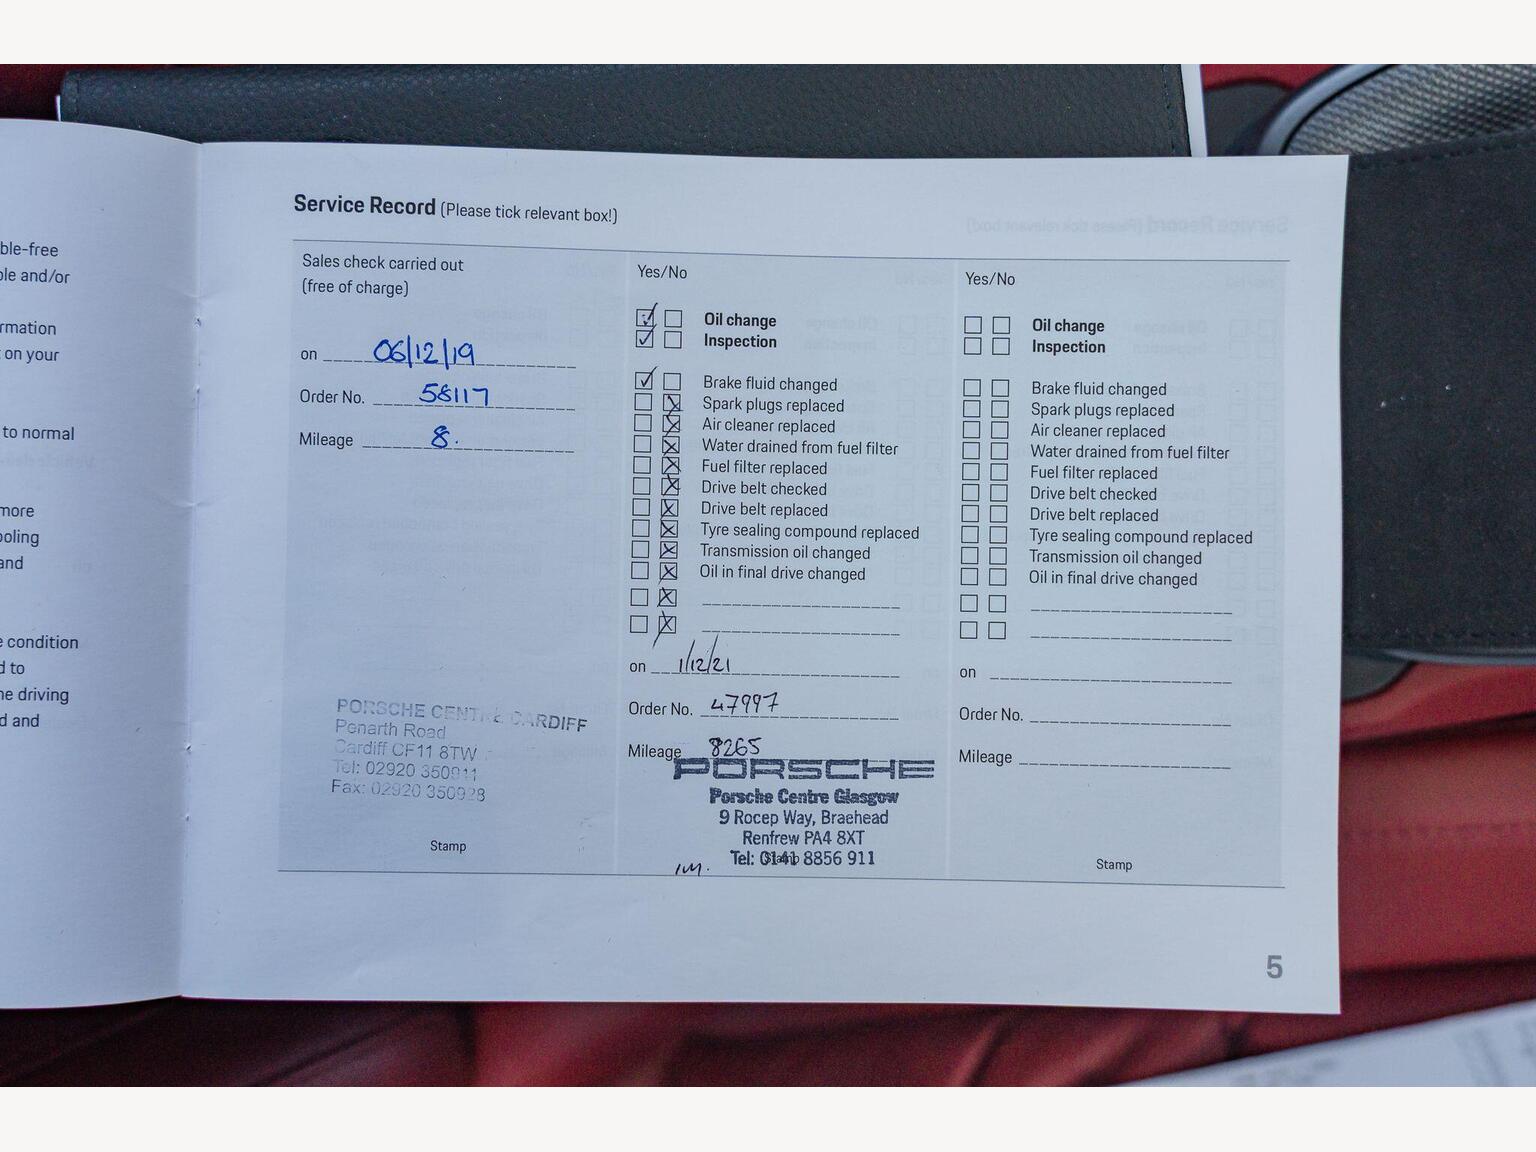 ble-free
ple and/or
rmation
t on your
to normal
more
ooling
and
e condition
d to
ne driving
d and
Service Record (Please tick relevant box!)
Sales check carried out
(free of charge)
on 06/12/19
Order No. 58117
Mileage 8.
PORSCHE CENTRE CARDIFF
Penarth Road
Cardiff CF11 8TW
Tel: 02920 350911
Fax: 02920 350928
Stamp
Yes/No
Oil change
Inspection
Brake fluid changed
Spark plugs replaced
Air cleaner replaced
Water drained from fuel filter
Fuel filter replaced
Drive belt checked
Drive belt replaced
Tyre sealing compound replaced
Transmission oil changed
Oil in final drive changed
on 1/12/21
Order No. 47997
Mileage 8265
PORSCHE
Porsche Centre Glasgow
9 Rocep Way, Braehead
Renfrew PA4 8XT
Tel: 0141 8856 911
Stamp
Yes/No
Oil change
Inspection
Brake fluid changed
Spark plugs replaced
Air cleaner replaced
Water drained from fuel filter
Fuel filter replaced
Drive belt checked
Drive belt replaced
Tyre sealing compound replaced
Transmission oil changed
Oil in final drive changed
on
Order No.
Mileage
Stamp
5